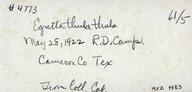 # 4773
61/5
Egretta thula thula
May 28, 1922 R.D. Camp.
Cameron Co Tex
From Coll. Cab.
MVZ 4983